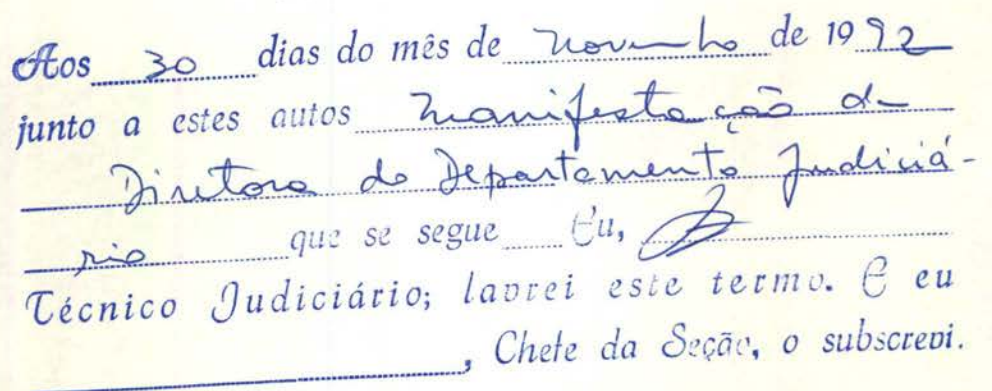 Aos 30 dias do mês de novembro de 1992
junto a estes autos manifestação da
Diretora do Departamento Judiciá-
rio que se segue Eu,
Técnico Judiciário; lavrei este termo. E eu
, Chefe da Seção, o subscrevi.